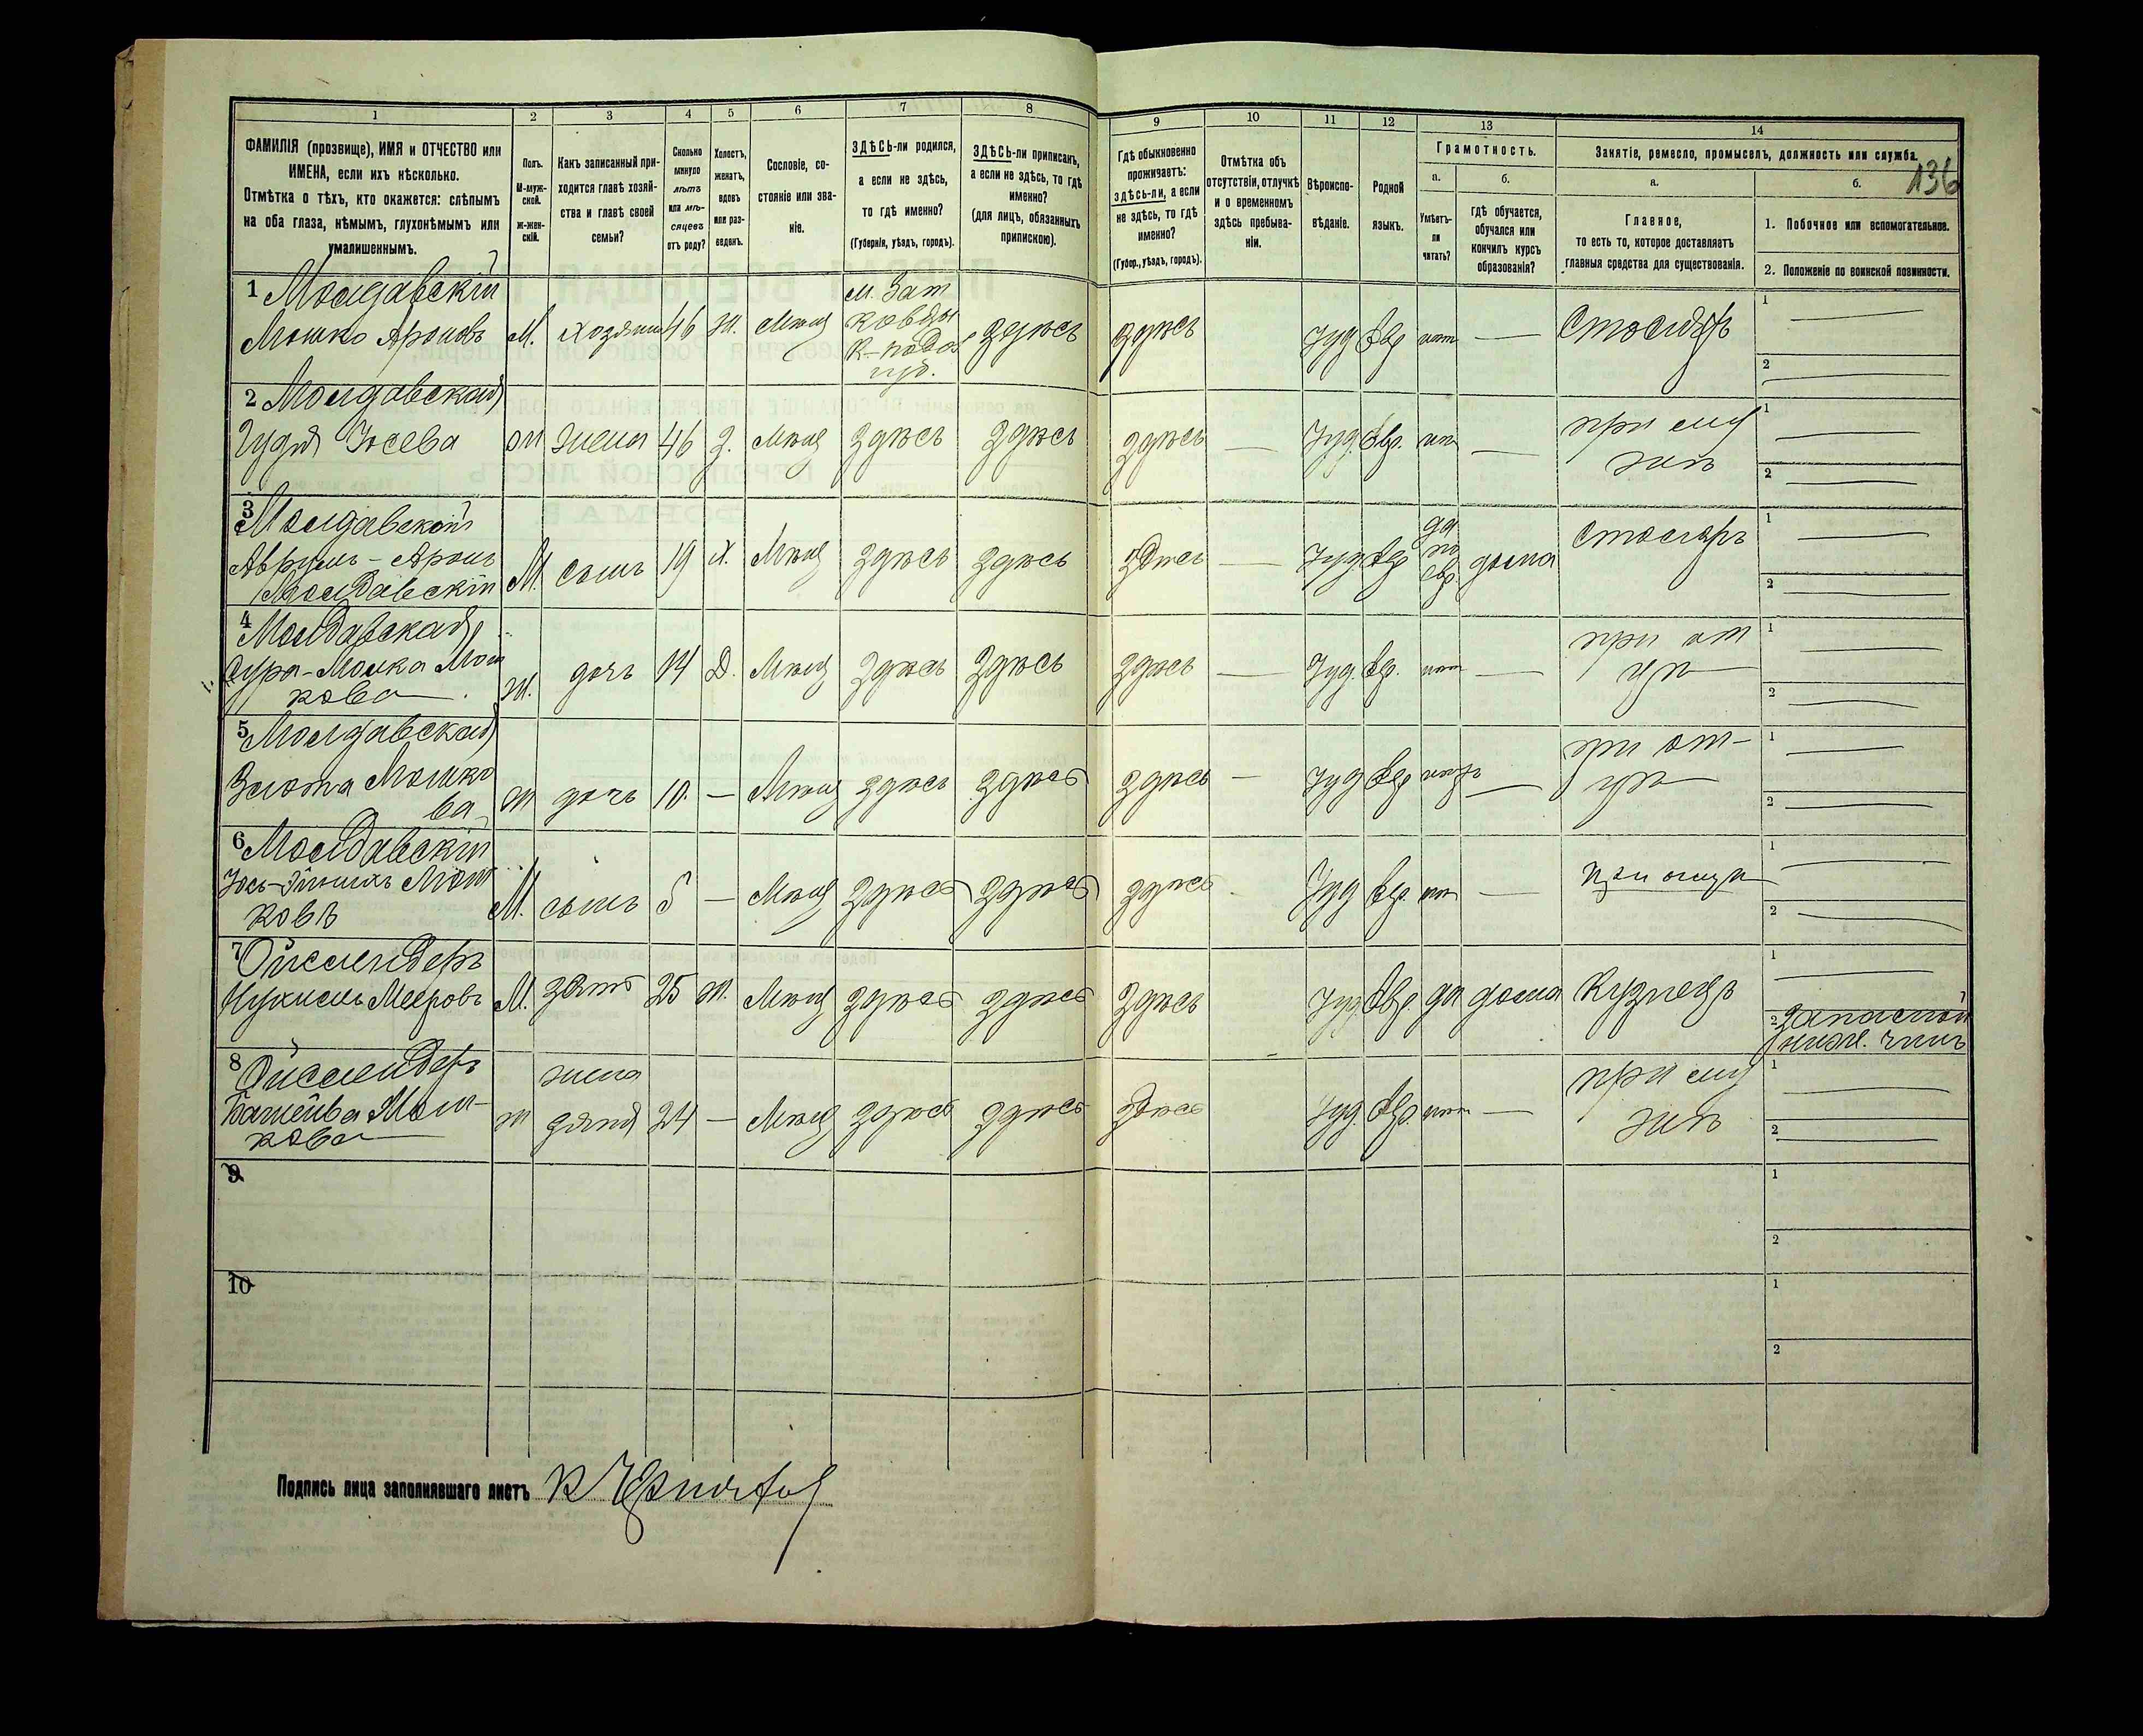 136
1 2 3 4 5 6 7 8 9 10 11 12 13 14
ФАМИЛІЯ (прозвище), ИМЯ и ОТЧЕСТВО или
ИМЕНА, если ихъ нѣсколько.
Отмѣтка о тѣхъ, кто окажется: слѣпымъ
на оба глаза, нѣмымъ, глухонѣмымъ или
умалишеннымъ.
Полъ.
М-муж-
ской.
Ж-жен-
скій.
Какъ записанный при-
ходится главѣ хозяй-
ства и главѣ своей
семьи?
Сколько
минуло
лѣтъ
или мѣ-
сяцевъ
отъ роду?
Холостъ,
женатъ,
вдовъ
или раз-
веденъ.
Сословіе, со-
стояніе или зва-
ніе.
ЗДѢСЬ-ли родился,
а если не здѣсь,
то гдѣ именно?
(Губернія, уѣздъ, городъ).
ЗДѢСЬ-ли приписанъ,
а если не здѣсь, то гдѣ
именно?
(для лицъ, обязанныхъ
припискою).
Гдѣ обыкновенно
проживаетъ:
ЗДѢСЬ-ли, а если
не здѣсь, то гдѣ
именно?
(Губер., уѣздъ, городъ).
Отмѣтка объ
отсутствіи, отлучкѣ
и о временномъ
здѣсь пребыва-
ніи.
Вѣроиспо-
вѣданіе.
Родной
языкъ.
Грамотность.
а.
Умѣетъ-
ли
читать?
б.
Гдѣ обучается,
обучался или
кончилъ курсъ
образованія?
Занятіе, ремесло, промыселъ, должность или служба.
а.
Главное,
то есть то, которое доставляетъ
главныя средства для существованія.
б.
1. Побочное или вспомогательное.
2. Положеніе по воинской повинности.
1 Молдавскій
Мошко Ароновъ М. Хозяинъ 46 Ж. Мѣщ здѣсь здѣсь Іуд. Евр нѣтъ — Столяръ
1 —
2 —
2 Молдавская
Юсева Ж жена 46 З. Мѣщ здѣсь здѣсь здѣсь — Іуд. Евр. нѣтъ —
при му
жѣ
1 —
2 —
3 Молдавскій
Аврумъ-Аронъ
Молдавскій М. сынъ 19 Х. Мѣщ здѣсь здѣсь здѣсь — Іуд Евр
да
по
евр. дома Столяръ
1 —
2 —
4 Молдавская
Сура-Молка Мош
кова Ж. дочь 14 Д. Мѣщ здѣсь здѣсь здѣсь — Іуд. Евр. нѣтъ —
при от
цѣ
1 —
2 —
5 Молдавская
Злота Мошко
ва Ж дочь 10. — Мѣщ здѣсь здѣсь здѣсь — Іуд Евр нѣтъ —
при от-
цѣ
1 —
2 —
6 Молдавскій
Мош
ковъ М. сынъ 5 — Мѣщ здѣсь здѣсь здѣсь Іуд Евр. нѣтъ — при отцѣ
1 —
2 —
7 Ойслендеръ
Мееровъ М. зять 25 Ж. Мѣщ здѣсь здѣсь здѣсь Іуд. Евр. да дома Кузнецъ
1 —
2 запасной
нижн. чинъ
8 Ойслендеръ
Мош-
кова Ж
жена
зятя 24 — Мѣщ здѣсь здѣсь здѣсь Іуд. Евр. нѣтъ —
при му
жѣ
1 —
2 —
9
1
2
10
1
2
Подпись лица заполнявшаго листъ